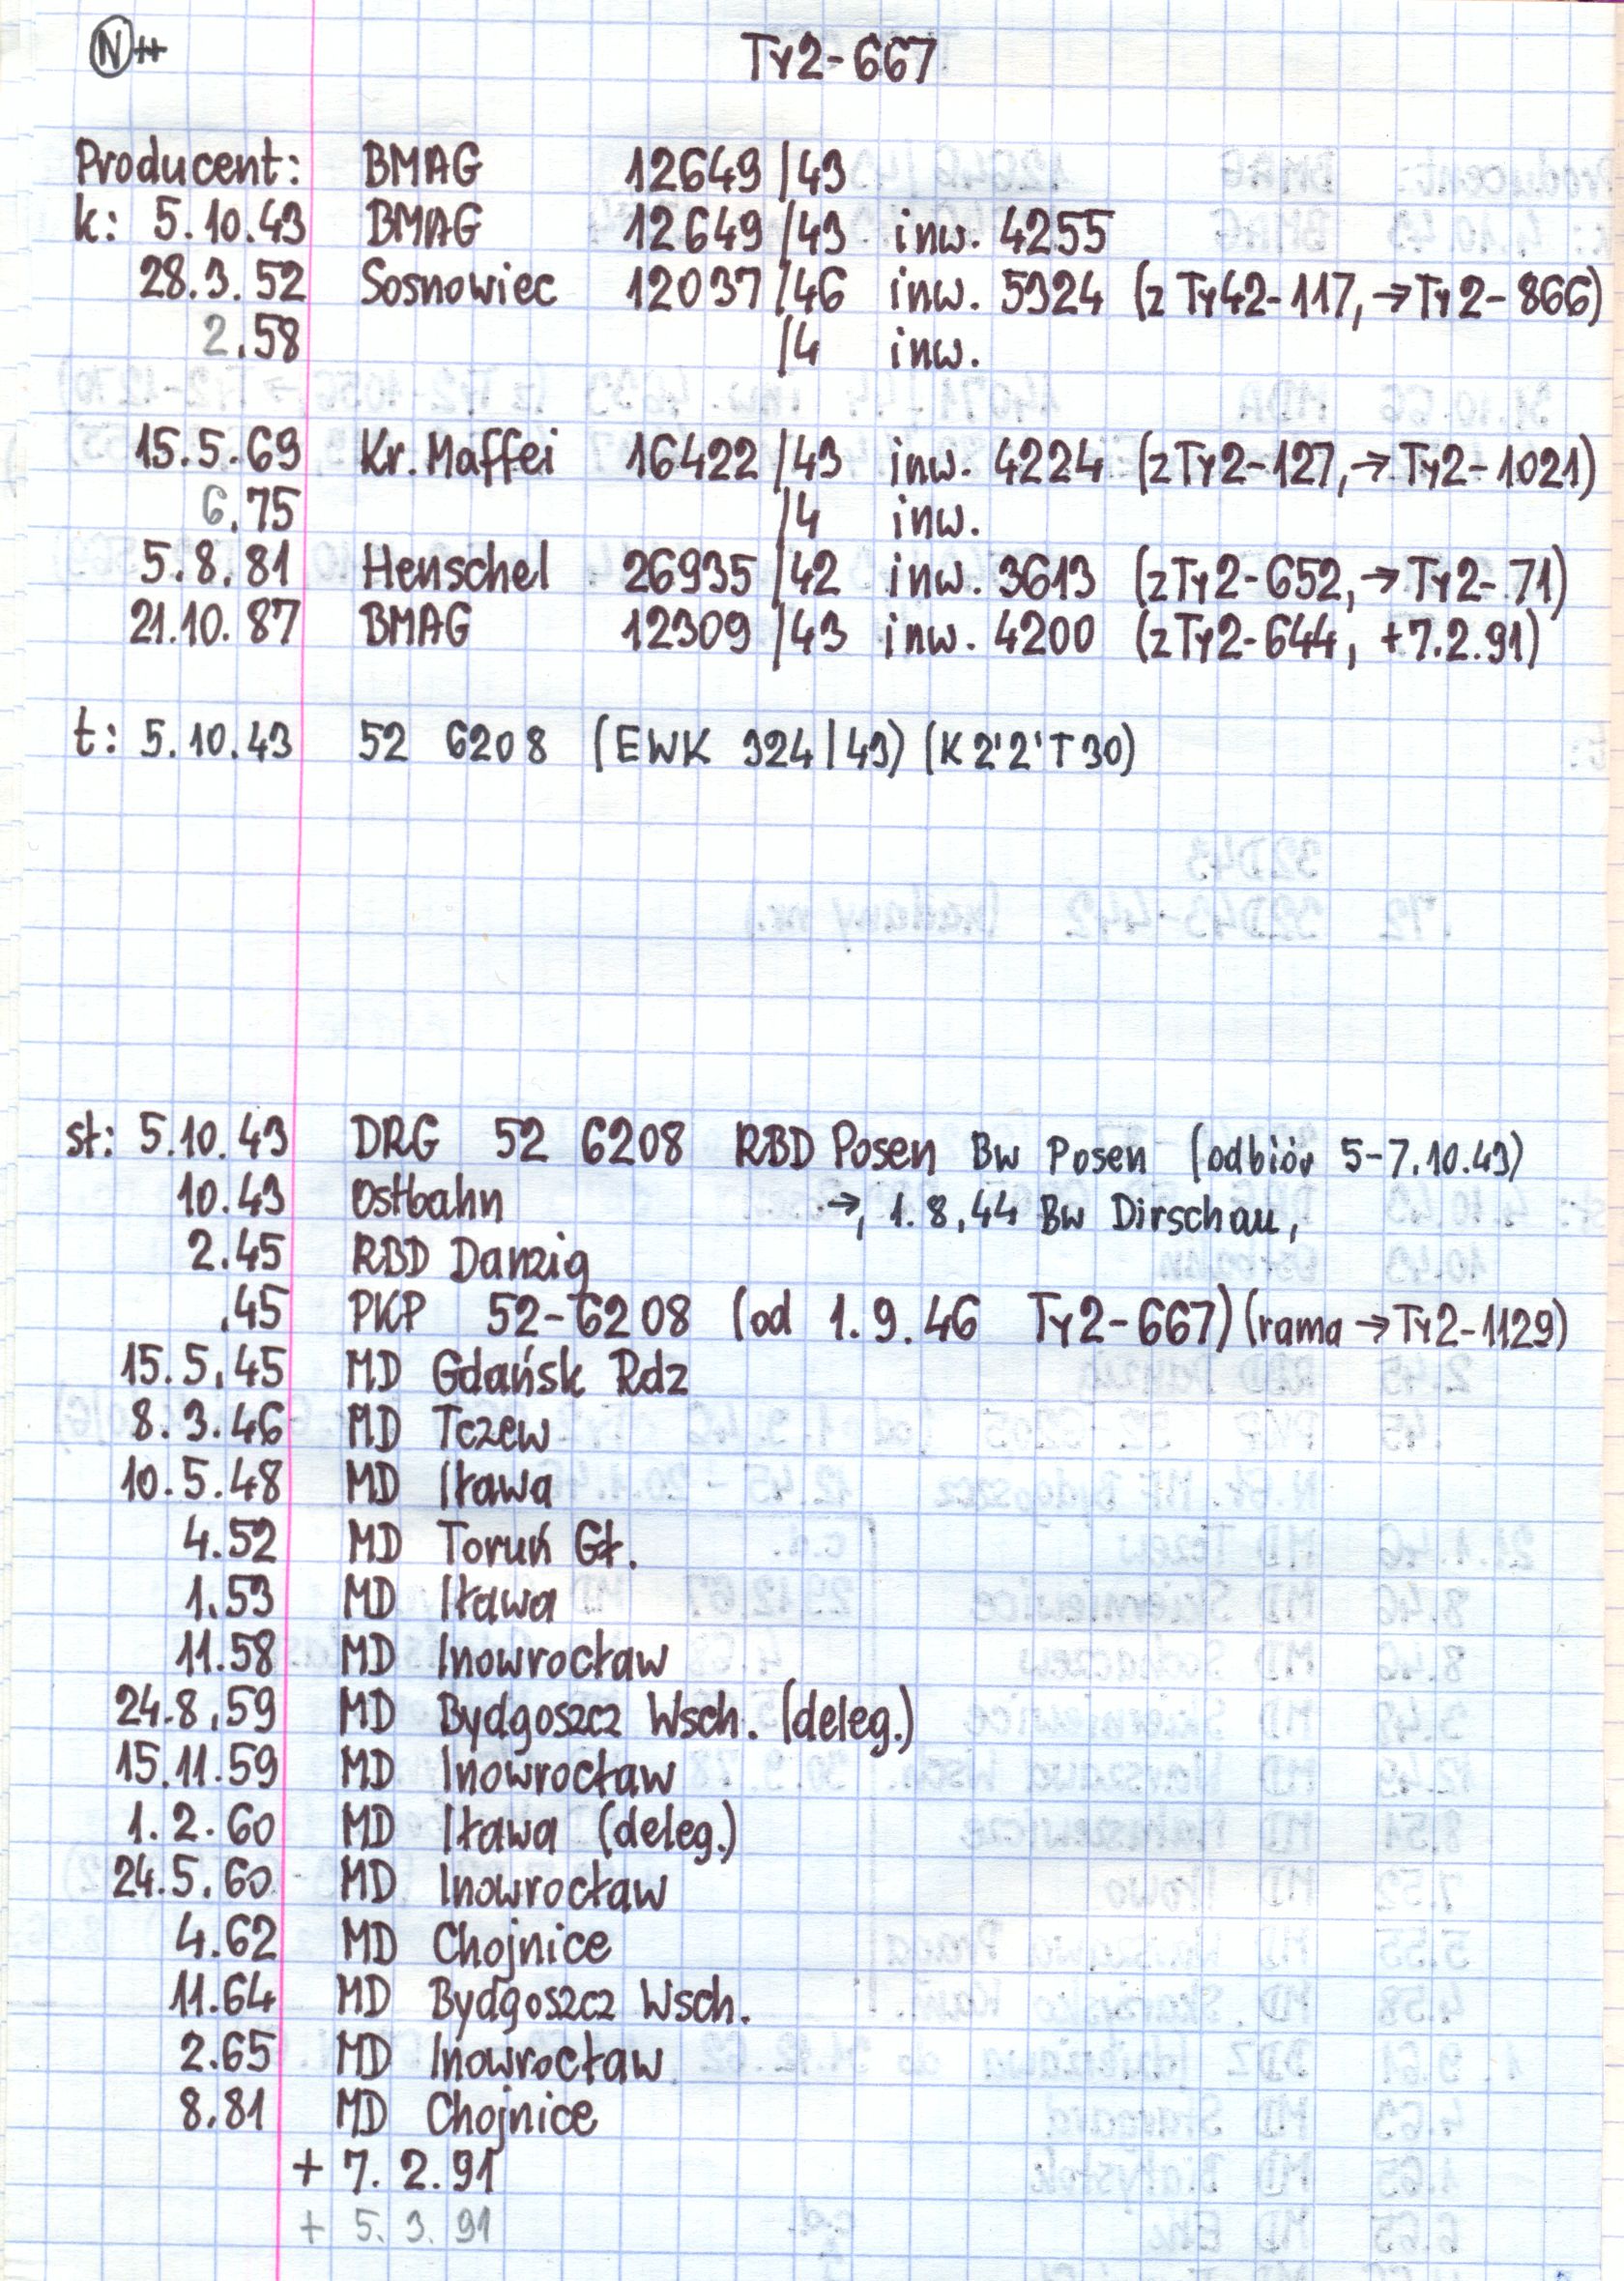 N ++
Ty2-667
Producent: BMAG 12649/43
k: 5.10.43 BMAG 12649/43 inw. 4255
28.3.52 Sosnowiec 12037/46 inw. 5324 (z Ty42-117, → Ty2-866)
2.58 /4 inw.
15.5.69 Kr. Maffei 16422/43 inw. 4224 (z Ty2-127, → Ty2-1021)
6.75 /4 inw.
5.8.81 Henschel 26935/42 inw. 3613 (z Ty2-652, → Ty2-71)
21.10.87 BMAG 12309/43 inw. 4200 (z Ty2-644, +7.2.91)
t: 5.10.43 52 6208 (EWK 324/43) (K 2'2'T30)
st: 5.10.43 DRG 52 6208 RBD Posen Bw Posen (odbiór 5-7.10.43)
10.43 Ostbahn →, 1.8.44 Bw Dirschau,
2.45 RBD Danzig
.45 PKP 52-6208 (od 1.9.46 Ty2-667) (rama → Ty2-1129)
15.5.45 MD Gdańsk Rdz
8.3.46 MD Tczew
10.5.48 MD Iława
4.52 MD Toruń Gł.
1.53 MD Iława
11.58 MD Inowrocław
24.8.59 MD Bydgoszcz Wsch. (deleg.)
15.11.59 MD Inowrocław
1.2.60 MD Iława (deleg.)
24.5.60 MD Inowrocław
4.62 MD Chojnice
11.64 MD Bydgoszcz Wsch.
2.65 MD Inowrocław
8.81 MD Chojnice
+ 7.2.91
+ 5.3.91